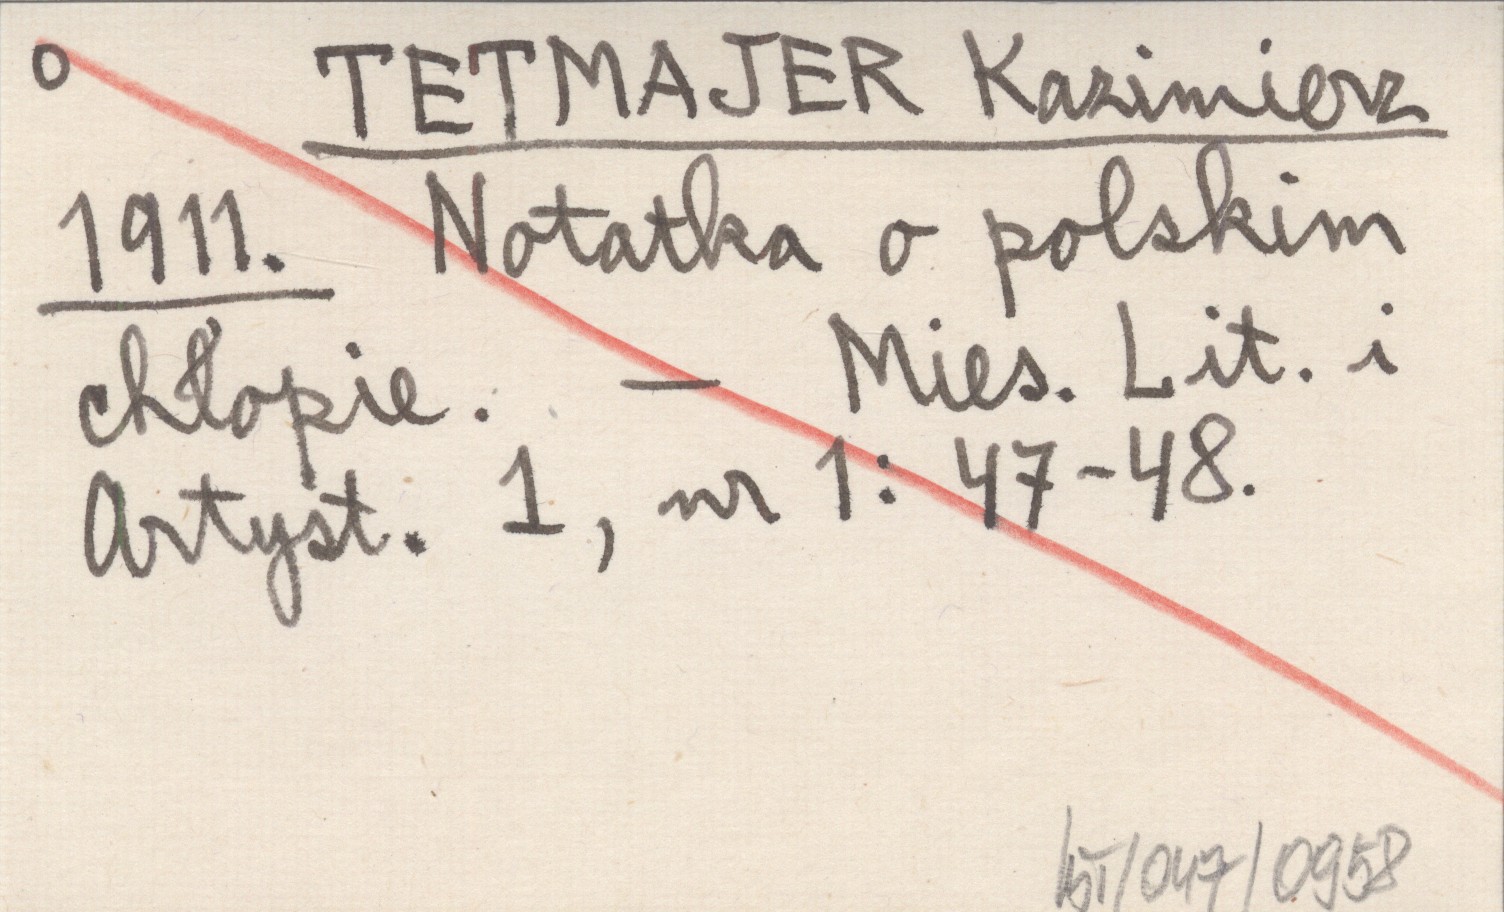 o TETMAJER Kazimierz
1911. Notatka o polskim
chłopie. — Mies. Lit. i
Artyst. 1, nr 1: 47-48.
/047/0958